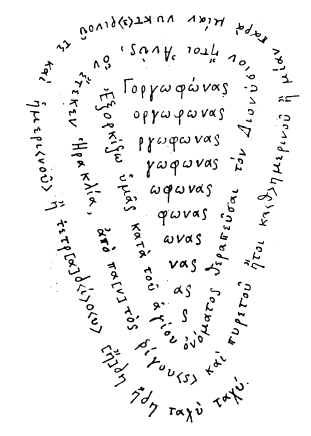 Γοργωφώνας
οργωφωνας
ργωφωνας
γωφωνας
ωφωνας
φωνας
ωνας
νας
ας
ς
Ἐξορκίζω ὑμᾶς κατὰ τοῦ ἁγίου ὀνόματος θεραπεῦσαι τὸν Διονύσιον ἤτοι Ἀνῦς, ὃν ἔτεκεν Ἡρακλία, ἀπὸ πα[ν]τὸς ῥίγου<ς> καὶ πυρετοῦ ἤτοι κα<θ>ημερινοῦ ἢ μίαν παρὰ μίαν νυκτ<ε>ρινοῦ τε καὶ ἡμερι<νοῦ> ἢ τετρ[α]δ<ί>ο<υ> [ἤ]δη ἤδη ταχὺ ταχύ.